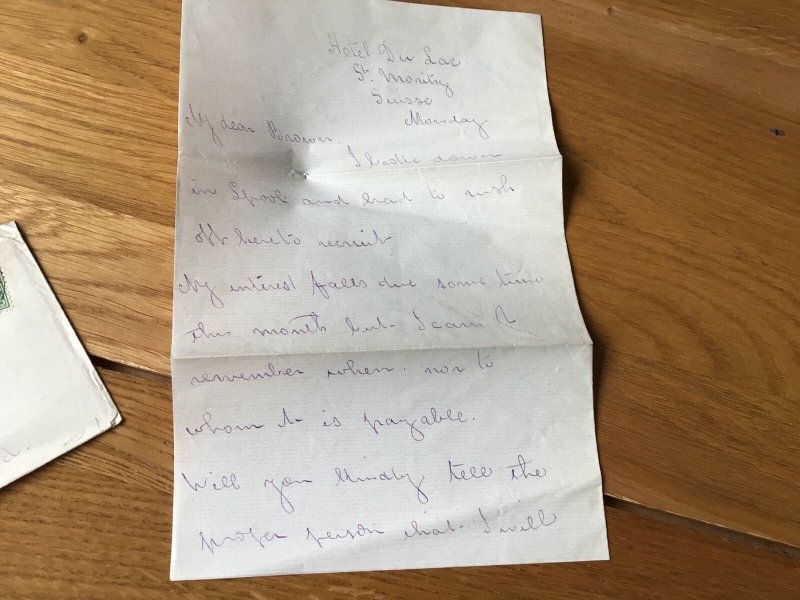 Hotel Du Lac
St. Moritz
Suisse
Monday
My dear Brown.
I broke down
in Lpool and had to rush
off here to recruit
My interest falls due some time
this month but I can't
remember when nor to
whom it is payable.
Will you kindly tell the
proper person that I will